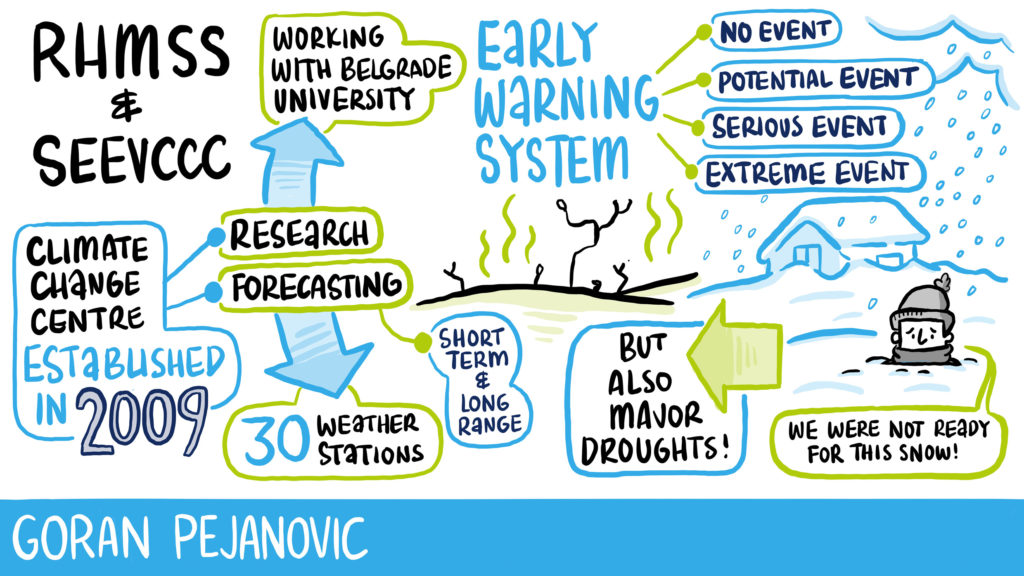 RHMSS
&
SEEVCCC
WORKING
WITH BELGRADE
UNIVERSITY
RESEARCH
FORECASTING
CLIMATE
CHANGE
CENTRE
ESTABLISHED
IN 2009
30 WEATHER
STATIONS
SHORT
TERM
&
LONG
RANGE
EARLY
WARNING
SYSTEM
NO EVENT
POTENTIAL EVENT
SERIOUS EVENT
EXTREME EVENT
BUT
ALSO
MAVOR
DROUGHTS!
WE WERE NOT READY
FOR THIS SNOW!
GORAN PEJANOVIC